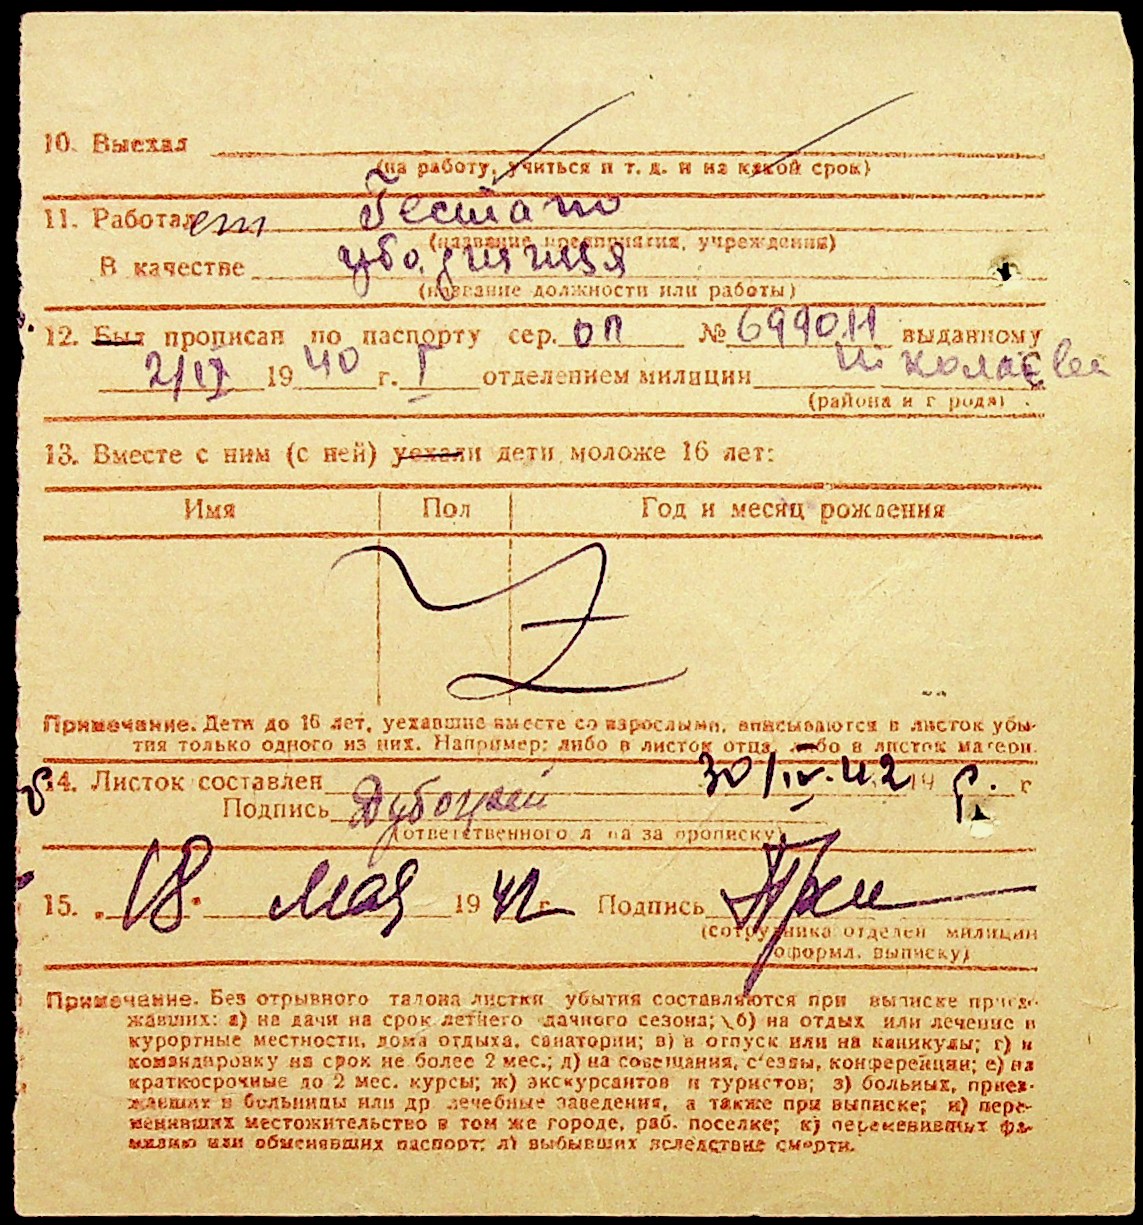 10. Выехал
(на работу, учиться и т. д. и на какой срок)
11. Работает Гестапо
(название предприятия, учреждения)
В качестве убо.рщица
(название должности или работы)
12. Был прописан по паспорту сер. ОП № 699011 выданному
2/IV 1940 г. I отделением милиции Николаева
(района и города)
13. Вместе с ним (с ней) уехали дети моложе 16 лет:
Имя Пол Год и месяц рождения
Z
Примечание. Дети до 16 лет, уехавшие вместе со взрослыми, вписываются в листок убы-
тия только одного из них. Например: либо в листок отца, либо в листок матери.
14. Листок составлен 30/IV.42 19 г. г
Подпись
(ответственного л ца за прописку)
15. „18" мая 1942 г. Подпись
(сотрудника отделен милиции
оформл. выписку)
Примечание. Без отрывного талона листки убытия составляются при выписке приез-
жавших: а) на дачи на срок летнего дачного сезона; б) на отдых или лечение в
курортные местности, дома отдыха, санатории; в) в отпуск или на каникулы; г) в
командировку на срок не более 2 мес.; д) на совещания, с'езды, конференции; е) на
краткосрочные до 2 мес. курсы; ж) экскурсантов и туристов; з) больных, приез-
жавших в больницы или др лечебные заведения, а также при выписке; и) пере-
менивших местожительство в том же городе, раб. поселке; к) переменивших фа-
милию или обменявших паспорт; л) выбывших вследствие смерти.